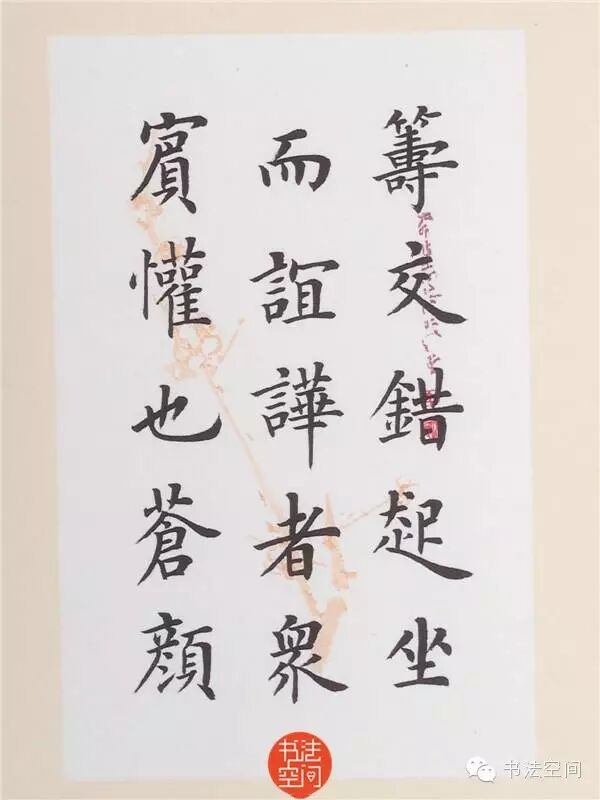 籌交錯起坐
而諠譁者衆
賓懽也蒼顔
书法空间
书法空间